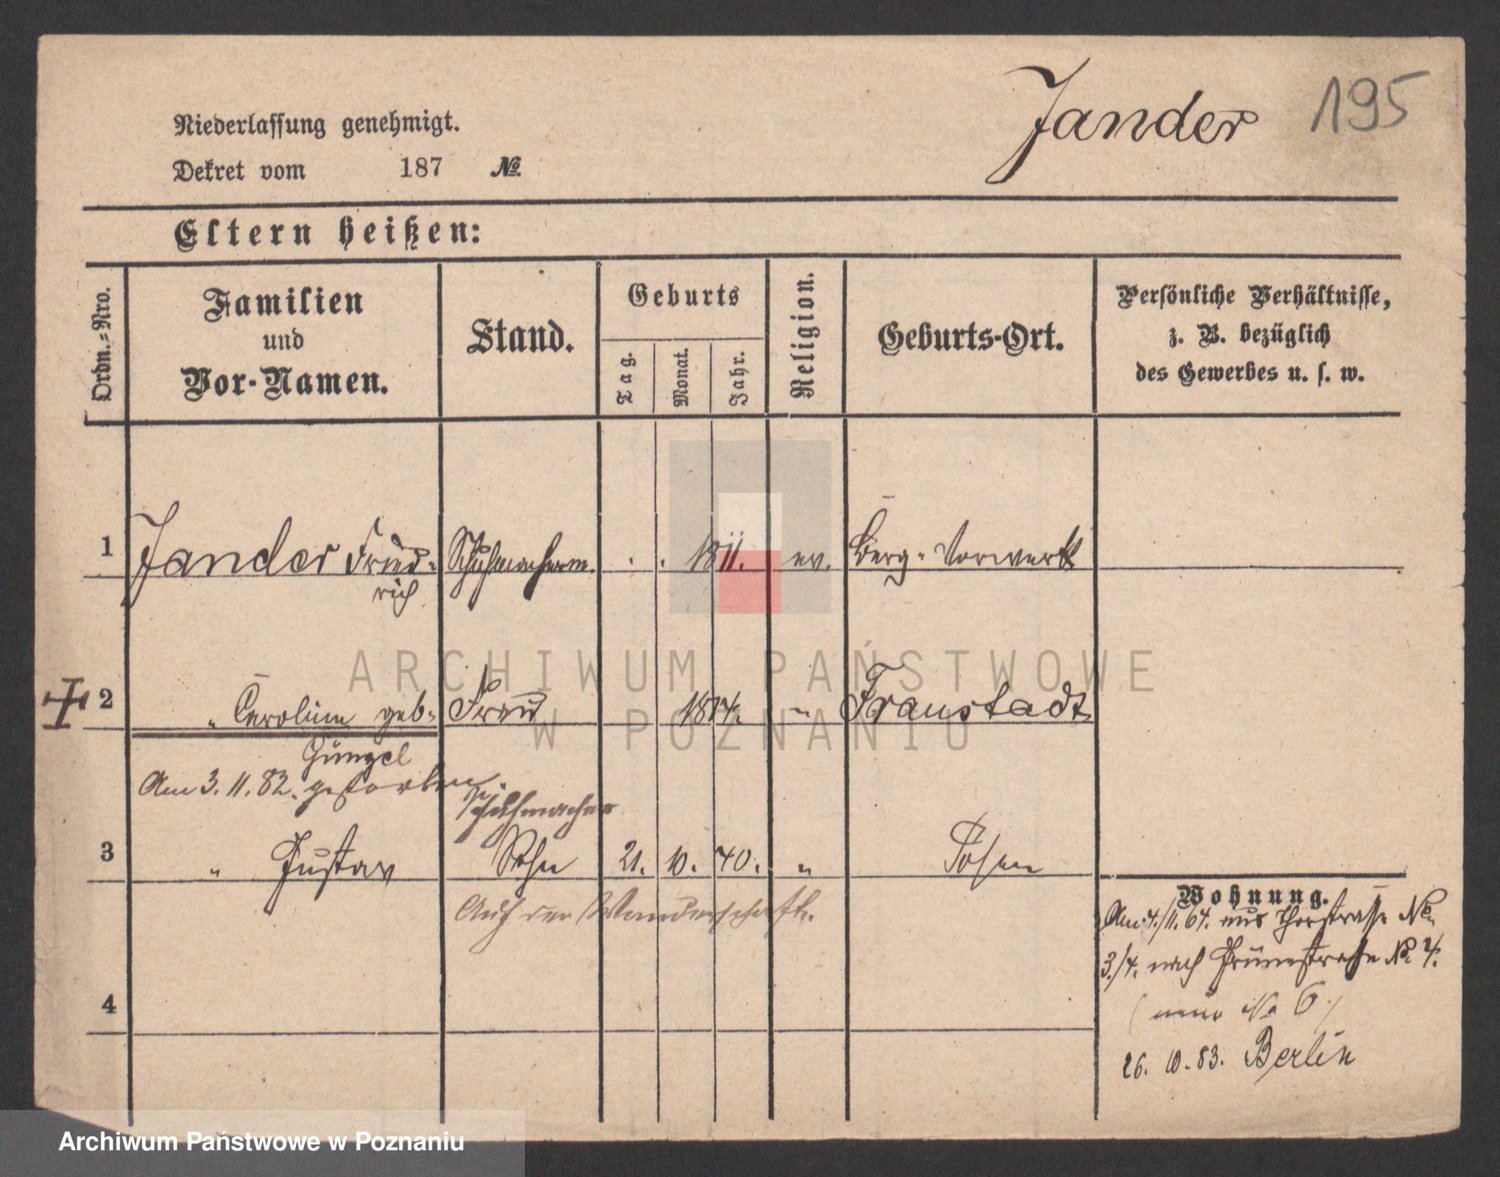 Jander 195
Niederlassung genehmigt.
Dekret vom 187 №
Eltern heißen:
Ordn.-Nro.
Familien
und
Vor-Namen.
Stand.
Geburts
Tag.
Monat.
Jahr.
Religion.
Geburts-Ort.
Persönliche Verhältnisse,
z. B. bezüglich
des Gewerbes u. s. w.
1 Jander Fried- Schuhmacherm. . . 1811. ev. Berg-Vorwerk
rich
2 " Caroline geb. Frau 1814. " Fraustadt
Am 3. 11. 82. gestorben.
Schuhmacher
3 " Gustav Sohn 21. 10. 40. " Posen
Auf der Wanderschaft.
4
Wohnung.
Am 4./11. 64. aus Thorstrasse No
3./4. nach Grünestrasse No 4.
(neue No 6)
26. 10. 83. Berlin
ARCHIWUM PAŃSTWOWE
W POZNANIU
Archiwum Państwowe w Poznaniu